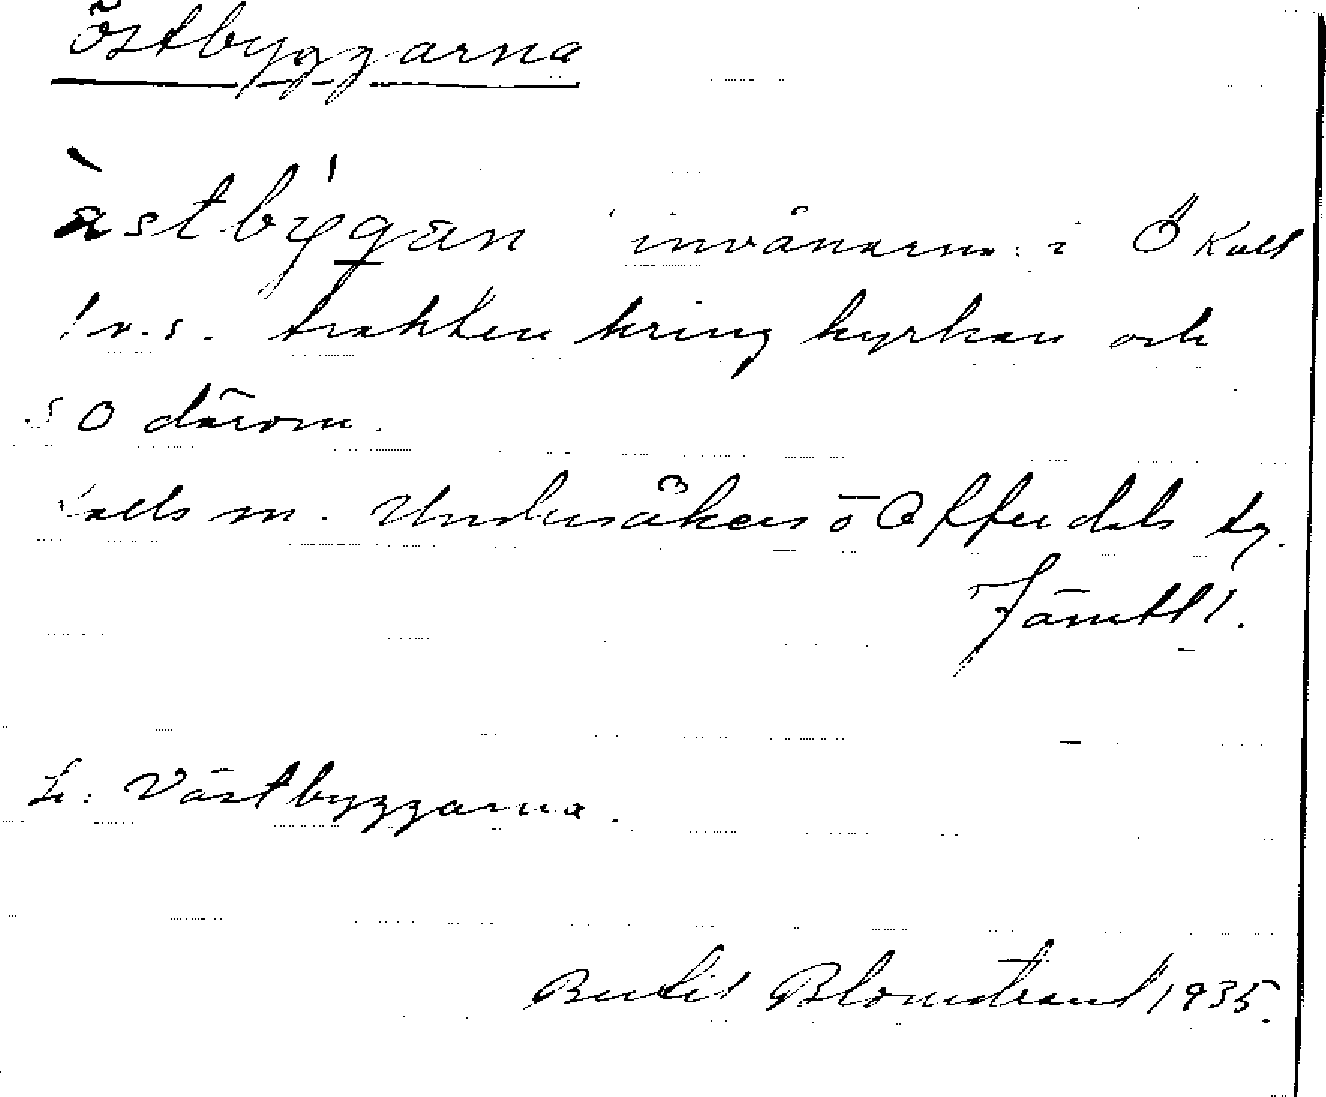 Östbyggarna
àstbýgan invånarna i Ö Kall
d.v.s. trakten kring kyrkan och
SO därom.
Kalls sn. Undersåkers o Offerdals tg.
Jämtl.
Västbyggarna.
Bertil Blomstrand 1935.